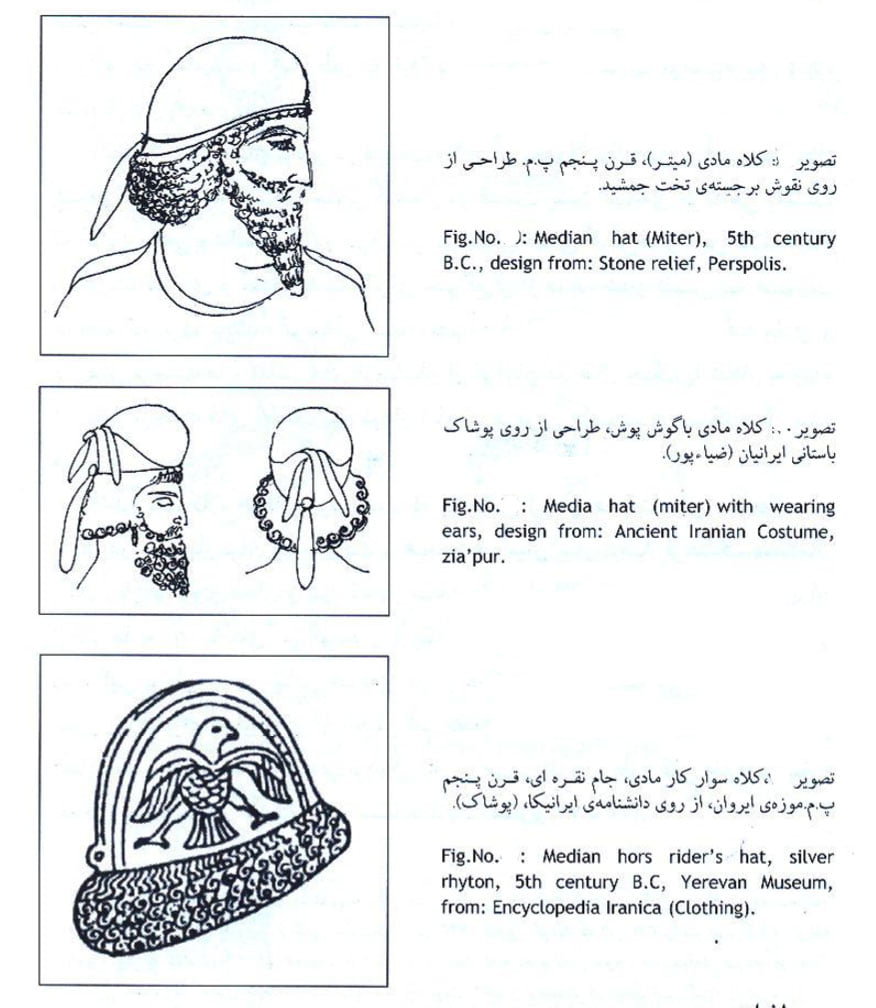 تصویر : کلاه مادی (میتر)، قرن پنجم پ.م. طراحی از
روی نقوش برجسته‌ی تخت جمشید.
Fig.No. : Median hat (Miter), 5th century
B.C., design from: Stone relief, Perspolis.
تصویر : کلاه مادی باگوش پوش، طراحی از روی پوشاک
باستانی ایرانیان (ضیاءپور).
Fig.No. : Media hat (miter) with wearing
ears, design from: Ancient Iranian Costume,
zia'pur.
تصویر ،کلاه سوار کار مادی، جام نقره ای، قرن پنجم
پ.م.موزه‌ی ایروان، از روی دانشنامه‌ی ایرانیکا، (پوشاک).
Fig.No. : Median hors rider's hat, silver
rhyton, 5th century B.C, Yerevan Museum,
from: Encyclopedia Iranica (Clothing).